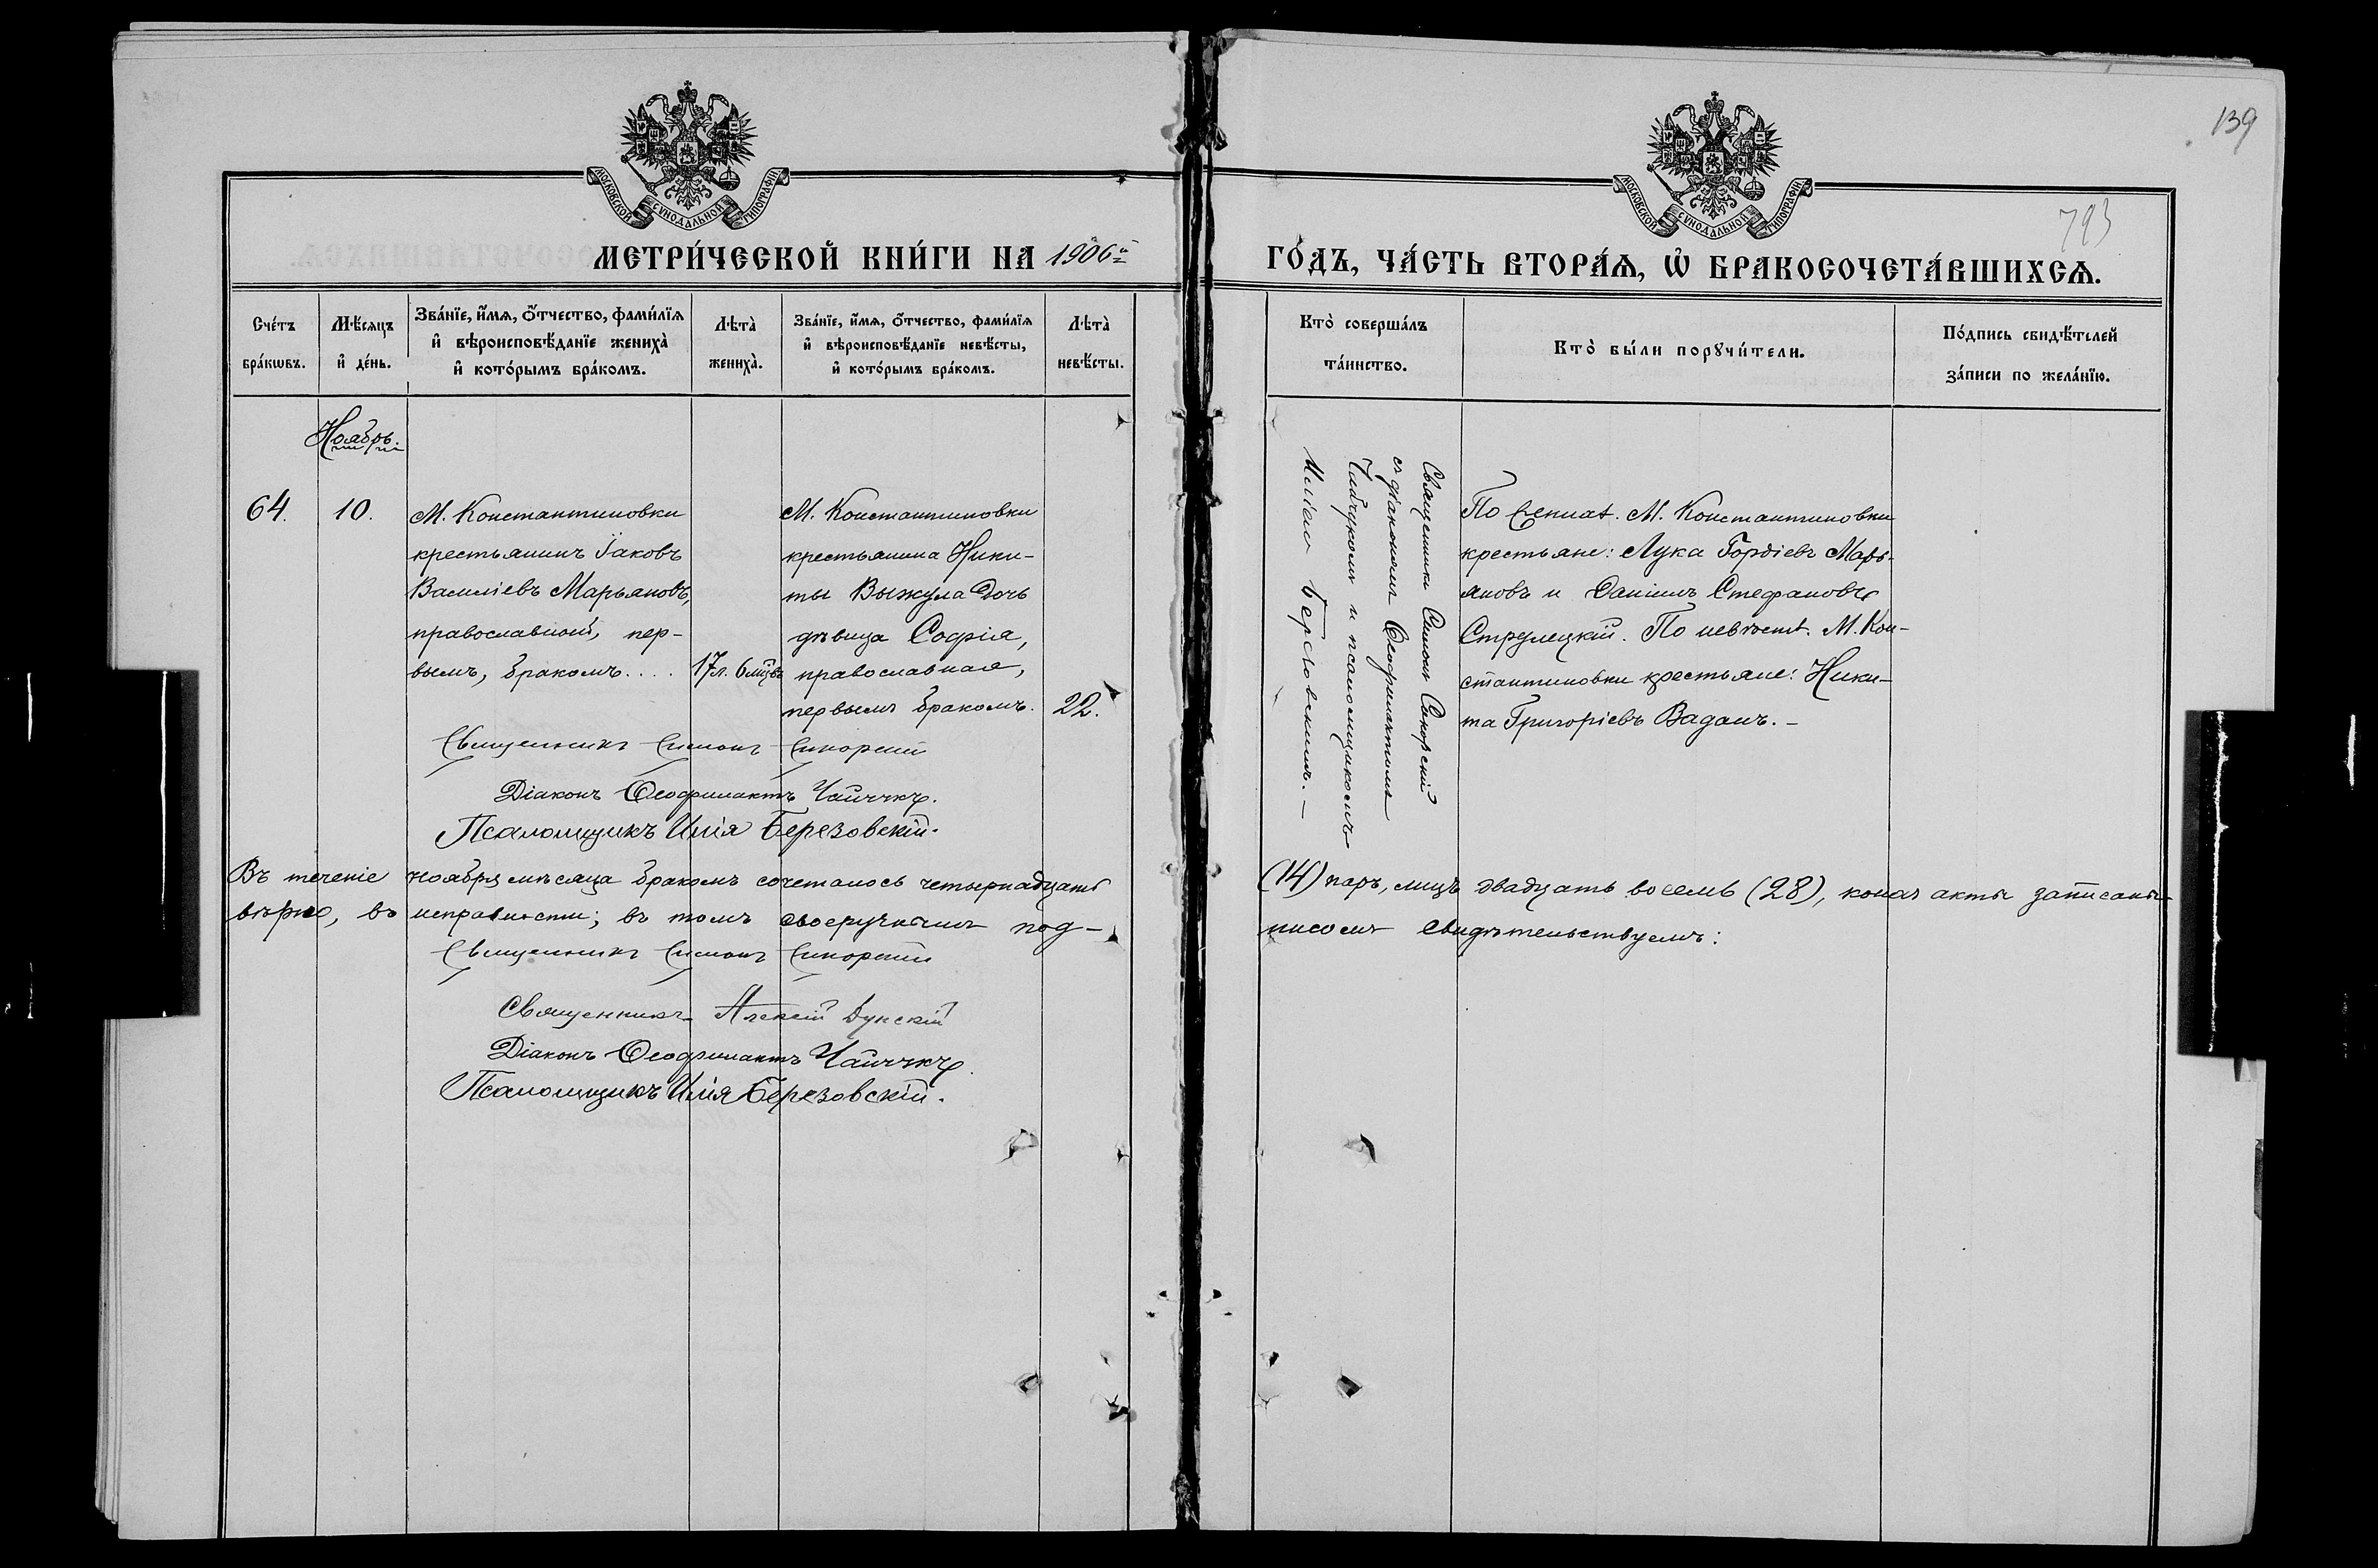 139
793
МОСКОВСКОЙ СѴНОДАЛЬНОЙ ТИПОГРАФІИ
МОСКОВСКОЙ СѴНОДАЛЬНОЙ ТИПОГРАФІИ
МЕТРИ́ЧЕСКОЙ КНИ́ГИ НА 1906й
ГО́ДЪ, ЧА́СТЬ ВТОРА́Ѧ, Ѽ БРАКОСОЧЕТА́ВШИХСѦ.
Сче́тъ
бра́кѡвъ.
Мѣ́сяцъ
и҆ де́нь.
Зва́нїе, и҆́мѧ, ѻ҆́тчество, фамилїѧ
и҆ вѣроисповѣ́данїе жениха̀
и҆ кото́рымъ бра́комъ.
Лѣта̀
жениха̀.
Зва́нїе, и҆́мѧ, ѻ҆́тчество, фами́лїѧ
и҆ вѣроисповѣ́данїе невѣ́сты,
и҆ кото́рымъ бра́комъ.
Лѣта̀
невѣ́сты.
Кто̀ соверша́лъ
та́инство.
Кто̀ бы́ли порꙋчи́тели.
По́дпись свидѣ́телей
за́писи по жела́нїю.
Ноябрь.
64.
10.
М. Константиновки
крестьянинъ Іаковъ
Василіевъ Марьяновъ,
православный, пер-
вымъ, бракомъ....
17л. 6мцвъ
М. Константиновки
крестьянина Ники-
ты Выжула дочь
дѣвица Софія,
православная,
первымъ бракомъ.
22.
Священникъ Симонъ Сикорскій
съ діакономъ Ѳеофилактомъ
Чайчукомъ и псаломщикомъ
Иліею Березовскимъ.—
По женихѣ. М. Константиновки
крестьяне: Лука Гордіевъ Марь-
яновъ и Даніилъ Стефановъ
Струлецкій. По невѣстѣ. М. Кон-
стантиновки крестьяне: Ники-
та Григоріевъ Ваданъ.—
Священникъ Симонъ Сикорскій
Діаконъ Ѳеофилактъ Чайчукъ.
Псаломщикъ Илія Березовскій.
Въ теченіе ноября мѣсяца бракомъ сочеталось четырнадцать (14) паръ, лицъ двадцать восемь (28), коихъ акты записаны
вѣрно, въ исправности; въ томъ своеручнымъ под-писомъ свидѣтельствуемъ:
Священникъ Симонъ Сикорскій
Священникъ Алексій Дунскій
Діаконъ Ѳеофилактъ Чайчукъ.
Псаломщикъ Илія Березовскій.